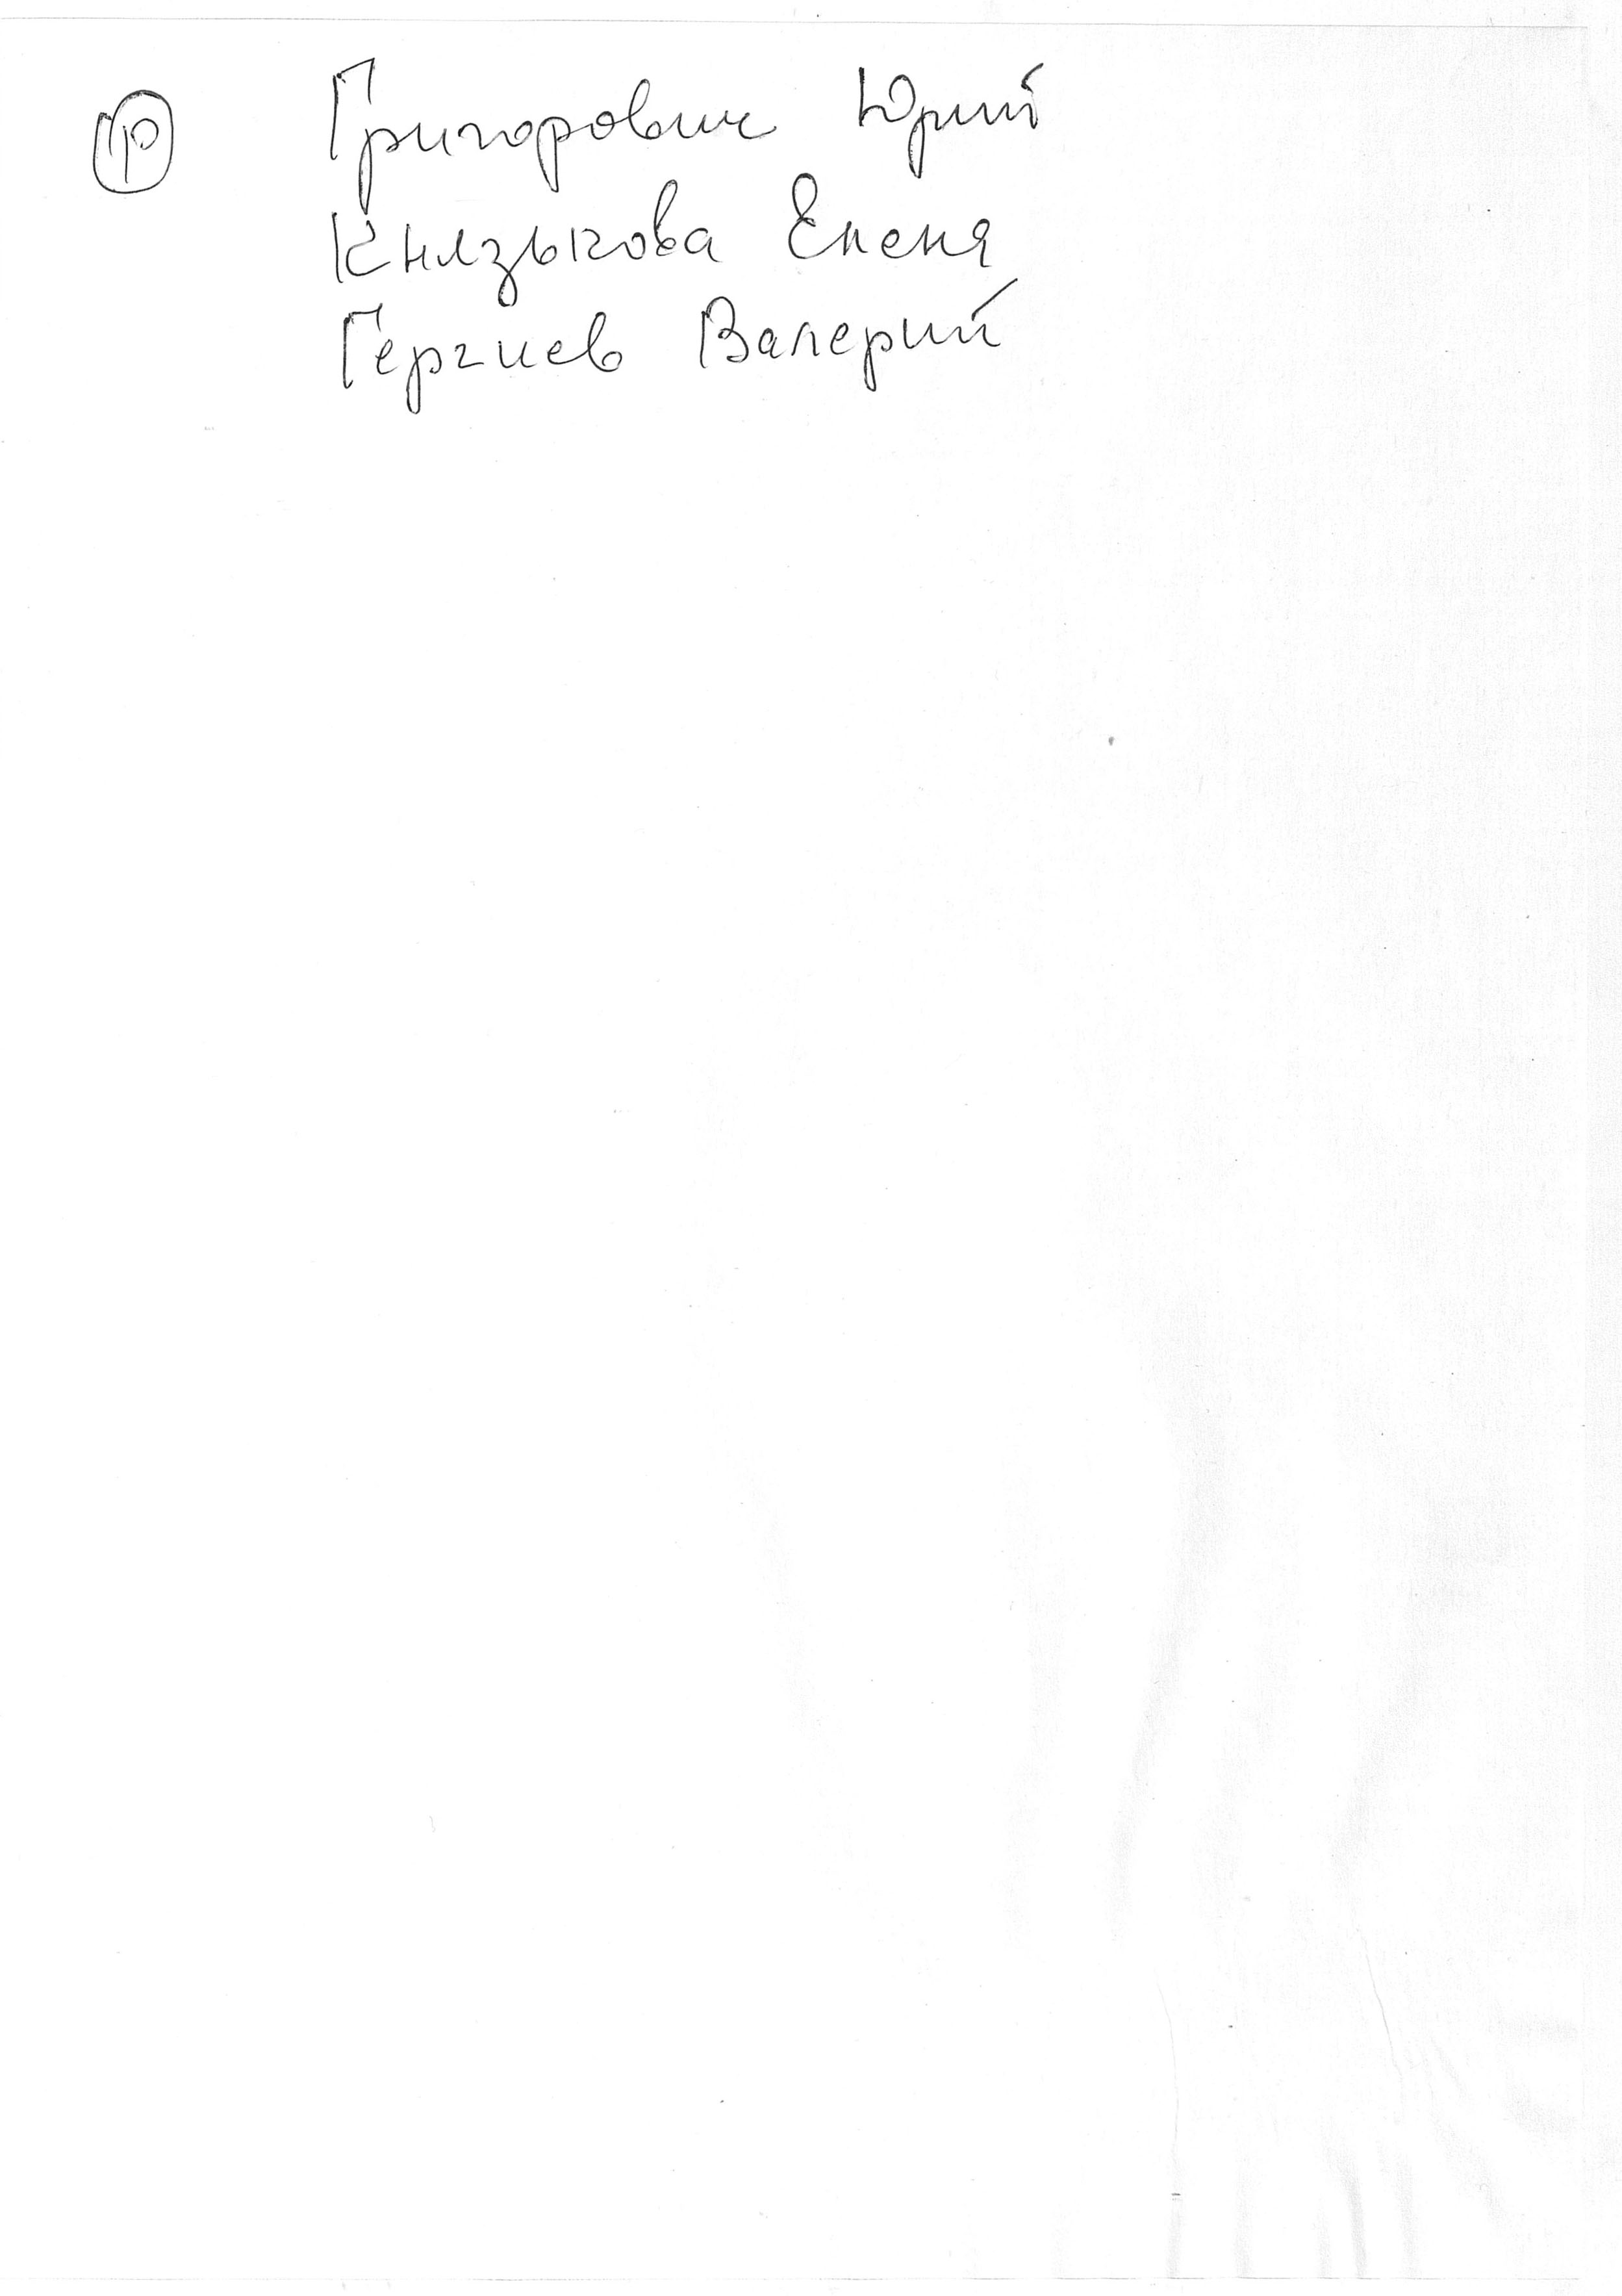 р Григорович Юрий
Князькова Елена
Гергиев Валерий